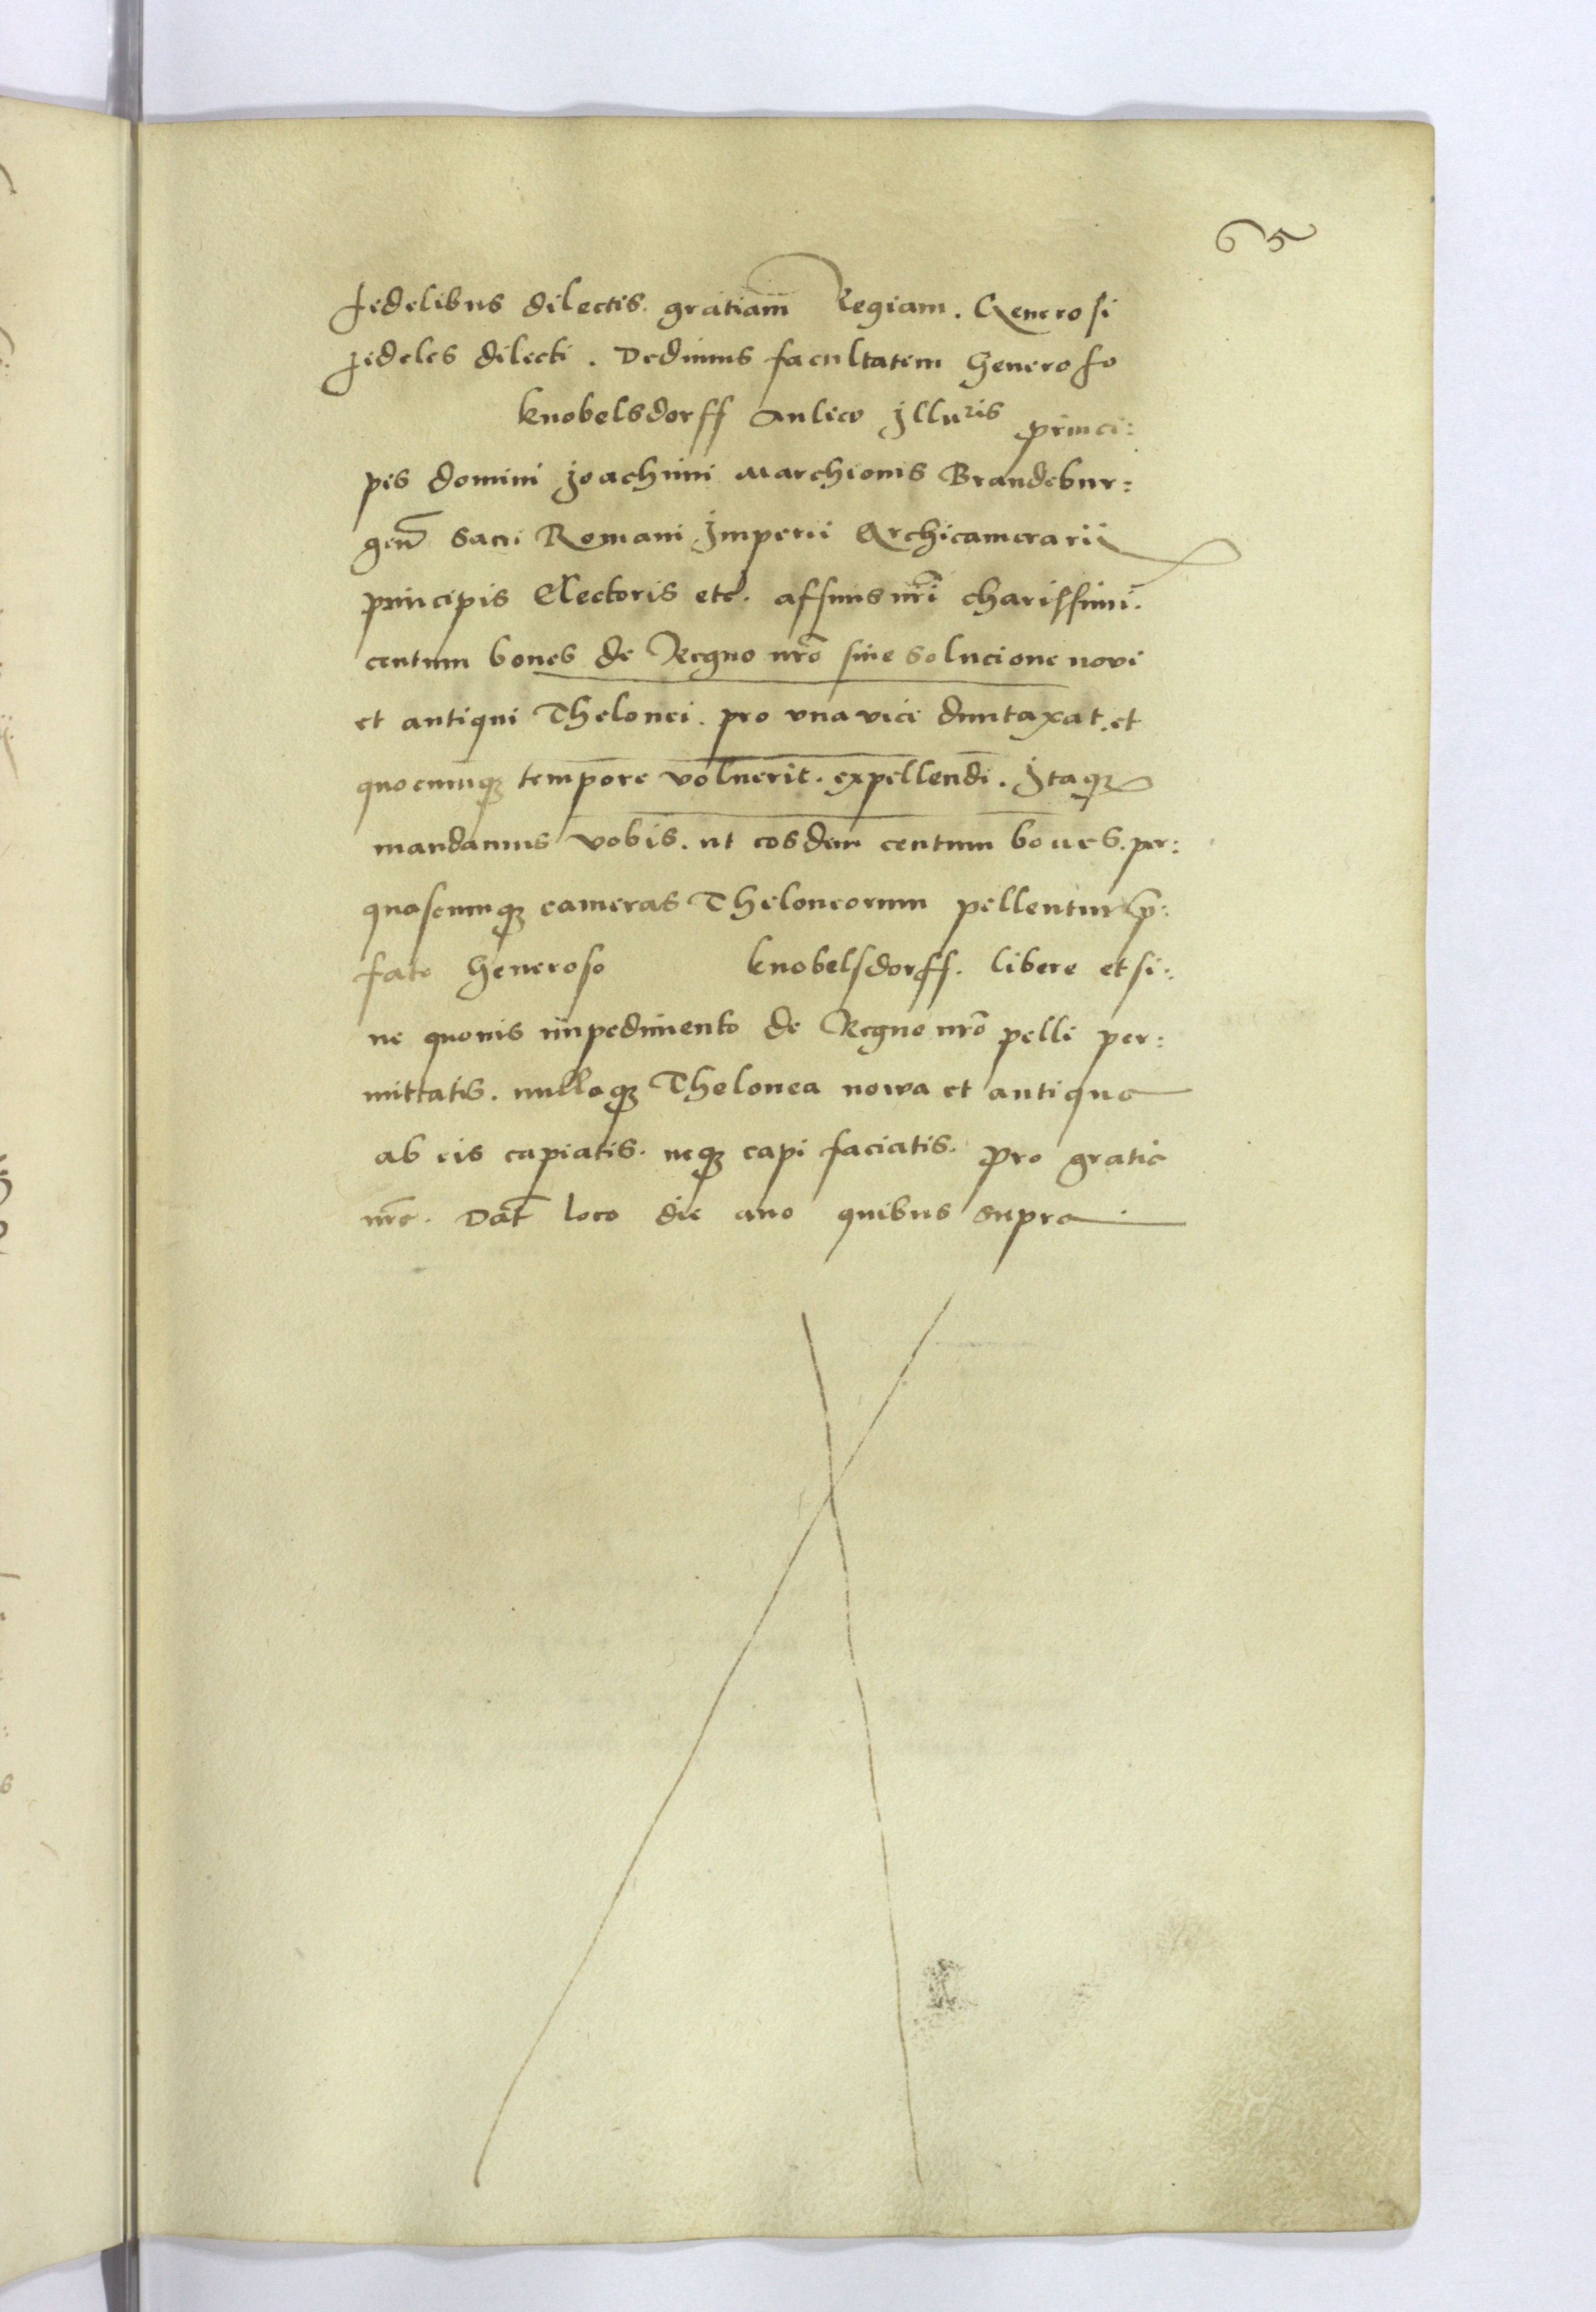 65
fidelibus dilectis. gratiam Regiam. Generosi
fideles dilecti. Dedimus facultatem Generoso
Knobelsdorff Aulico Illuris princi:
pis domini Joachimi Marchionis Brandebur:
gen̄ Sacri Romani Imperii Archicamerarii
principis Electoris etc. affinis nr̄i charissimi.
centum boues de Regno nr̄o sine solucione novi
et antiqui Thelonei. pro vna vice duntaxat. et
quocumqꝫ tempore voluerit. expellendi. Itaqꝫ
mandamus vobis. ut eosdem centum boues. per:
quascumqꝫ cameras Theloneorum pellentur p̄:
fato Generoso Knobelsdorff. libere et si:
ne quouis impedimento de Regno nr̄o pelli per:
mittatis. nullaqꝫ Thelonea nowa et antiqua
ab eis capiatis. neqꝫ capi faciatis. pro gratia
nr̄a. Dat̄ loco die ano quibus supra.